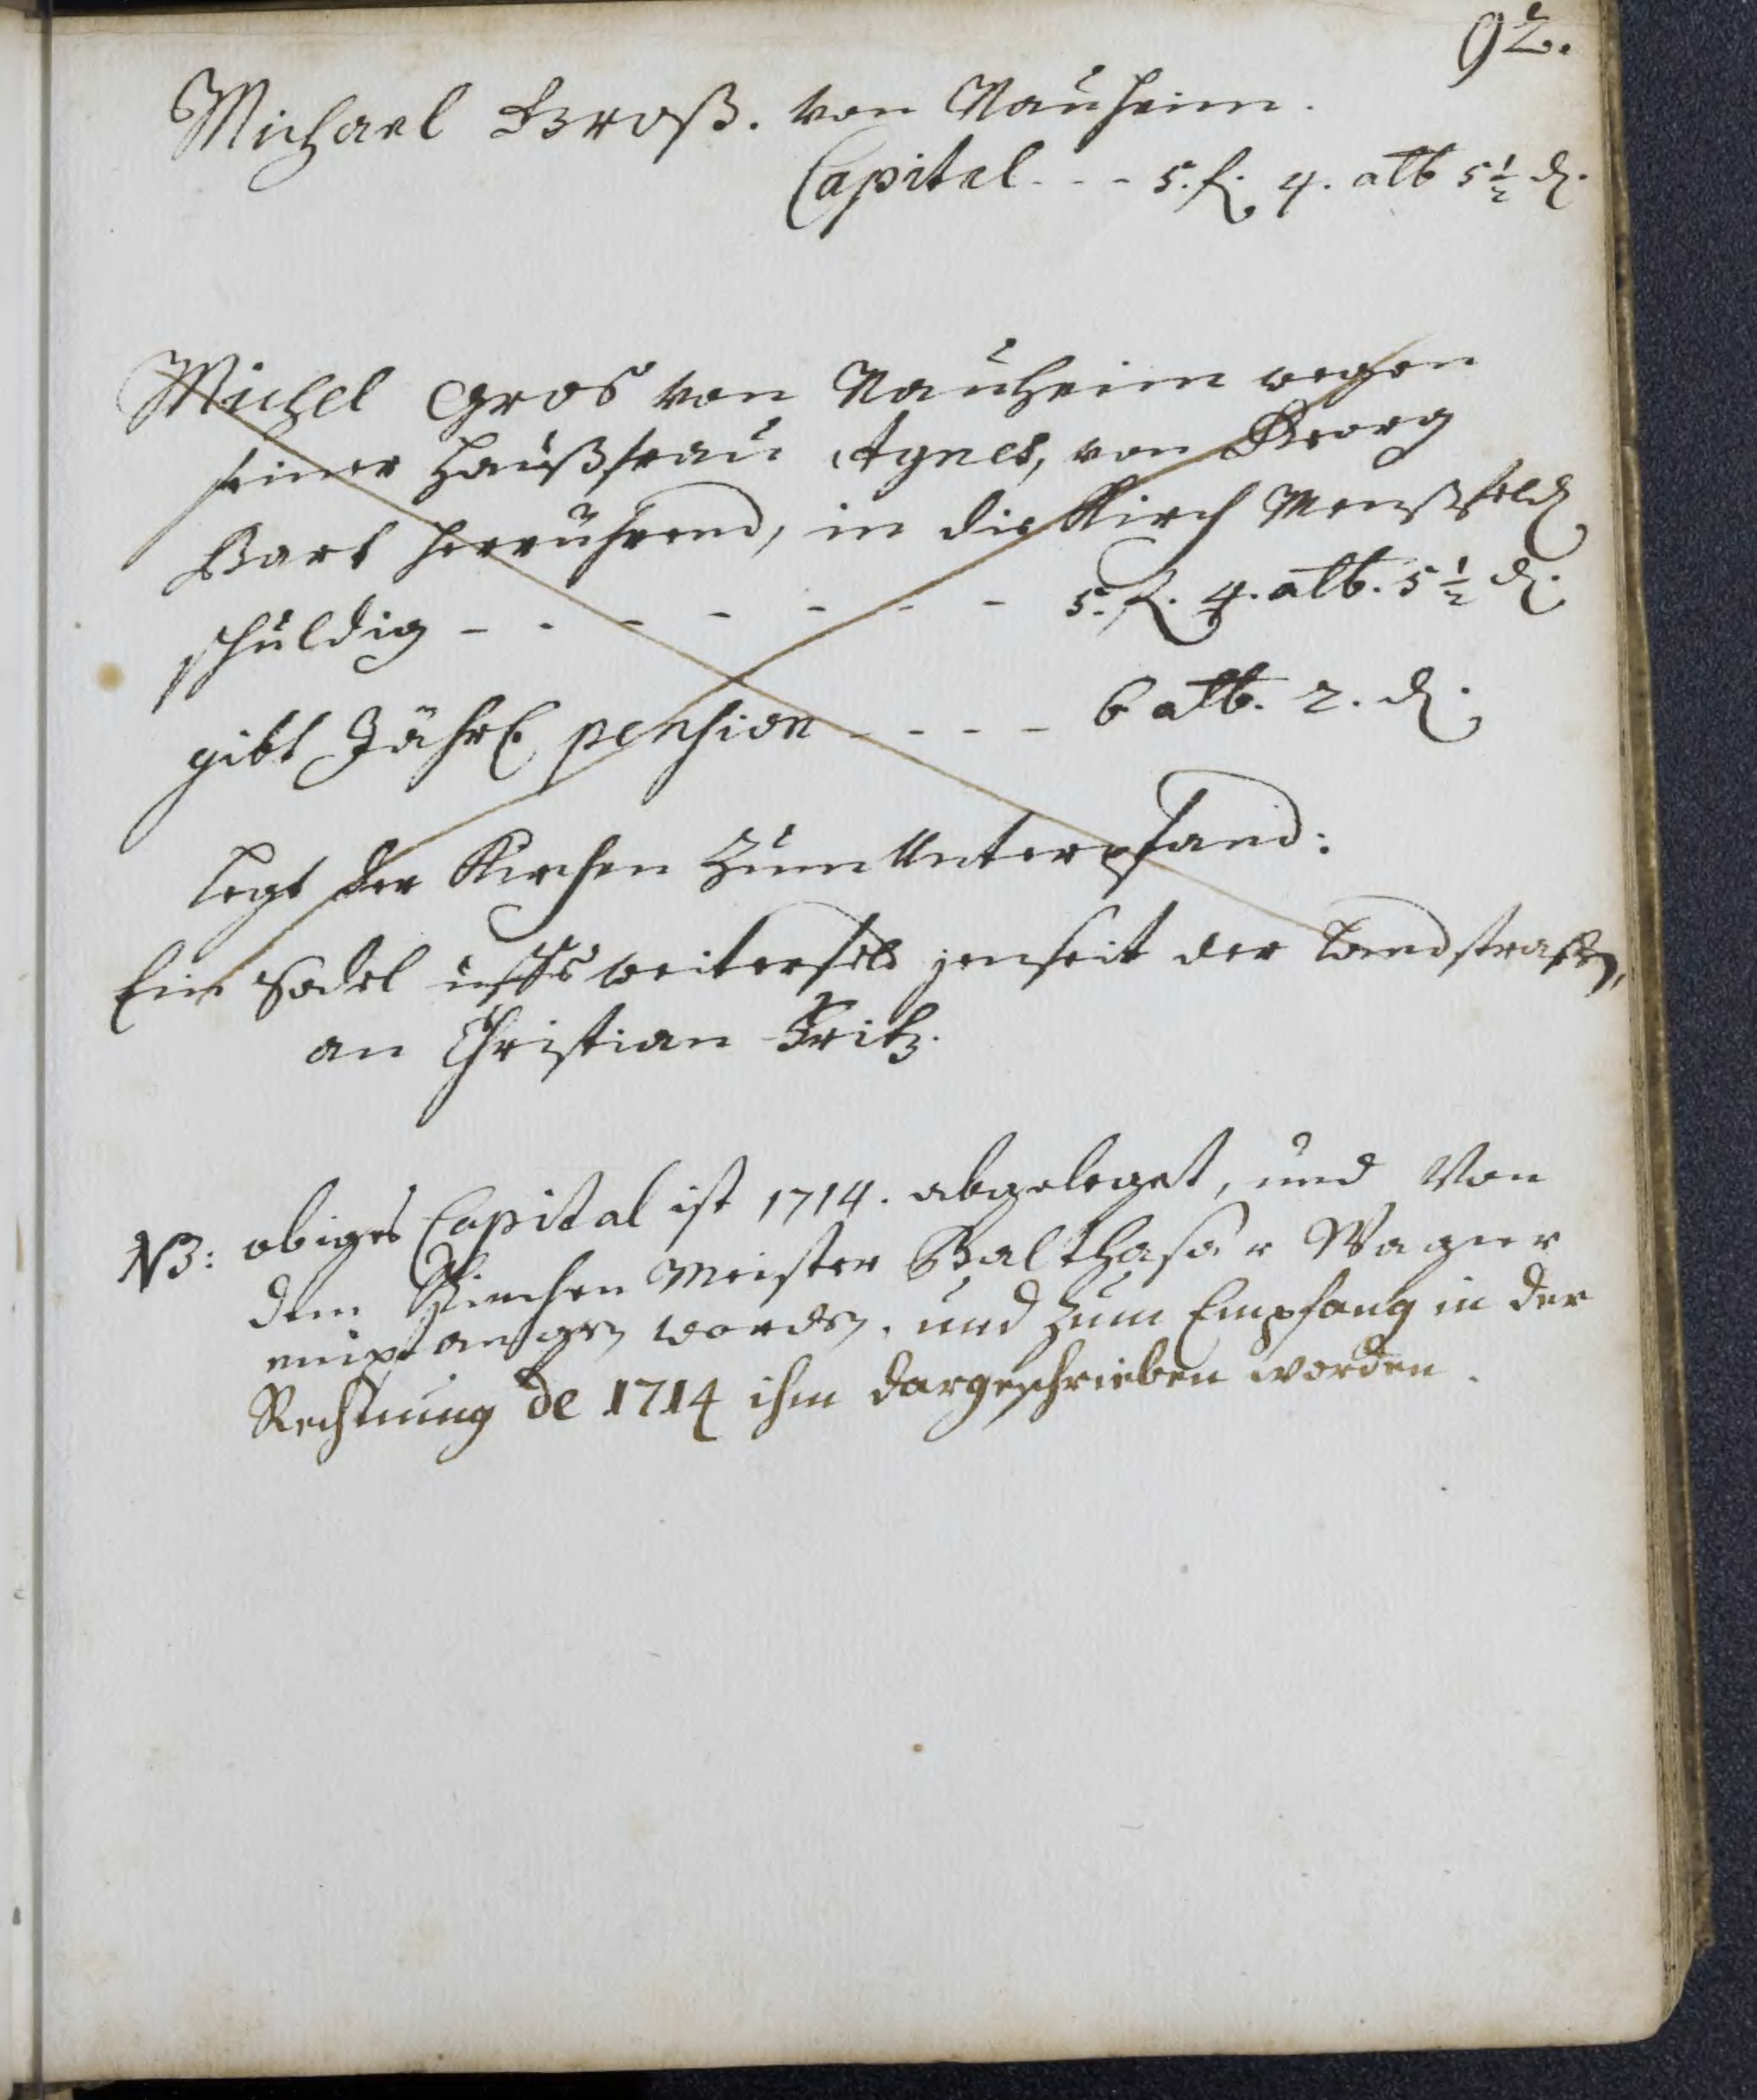 92.
Michael Groß. von Nauheim.
Capital - - - 5. fl. 4. alb 5 ½ d.
Michel Gros von Nauheim wegen
seiner Haußfrau Agnes, von Georg
Bart herrührend, in die Kirch Mensfeld
schuldig - - - - - - - 5. fl. 4. alb. 5 ½ d.
gibt Jährl. pension - - - - 6 alb. 2. d.
legt der Kirchen zum Unterpfand:
Ein sadel uffs weiterfeld jenseit der Landstraßen,
an Christian Fritz.
NB: obiges Capital ist 1714. abgeleget, und Von
dem Kirchen Meister Balthasar Wagner
empfangen worden, und zum Empfang in der
Rechnung de 1714 ihm dargeschrieben worden.